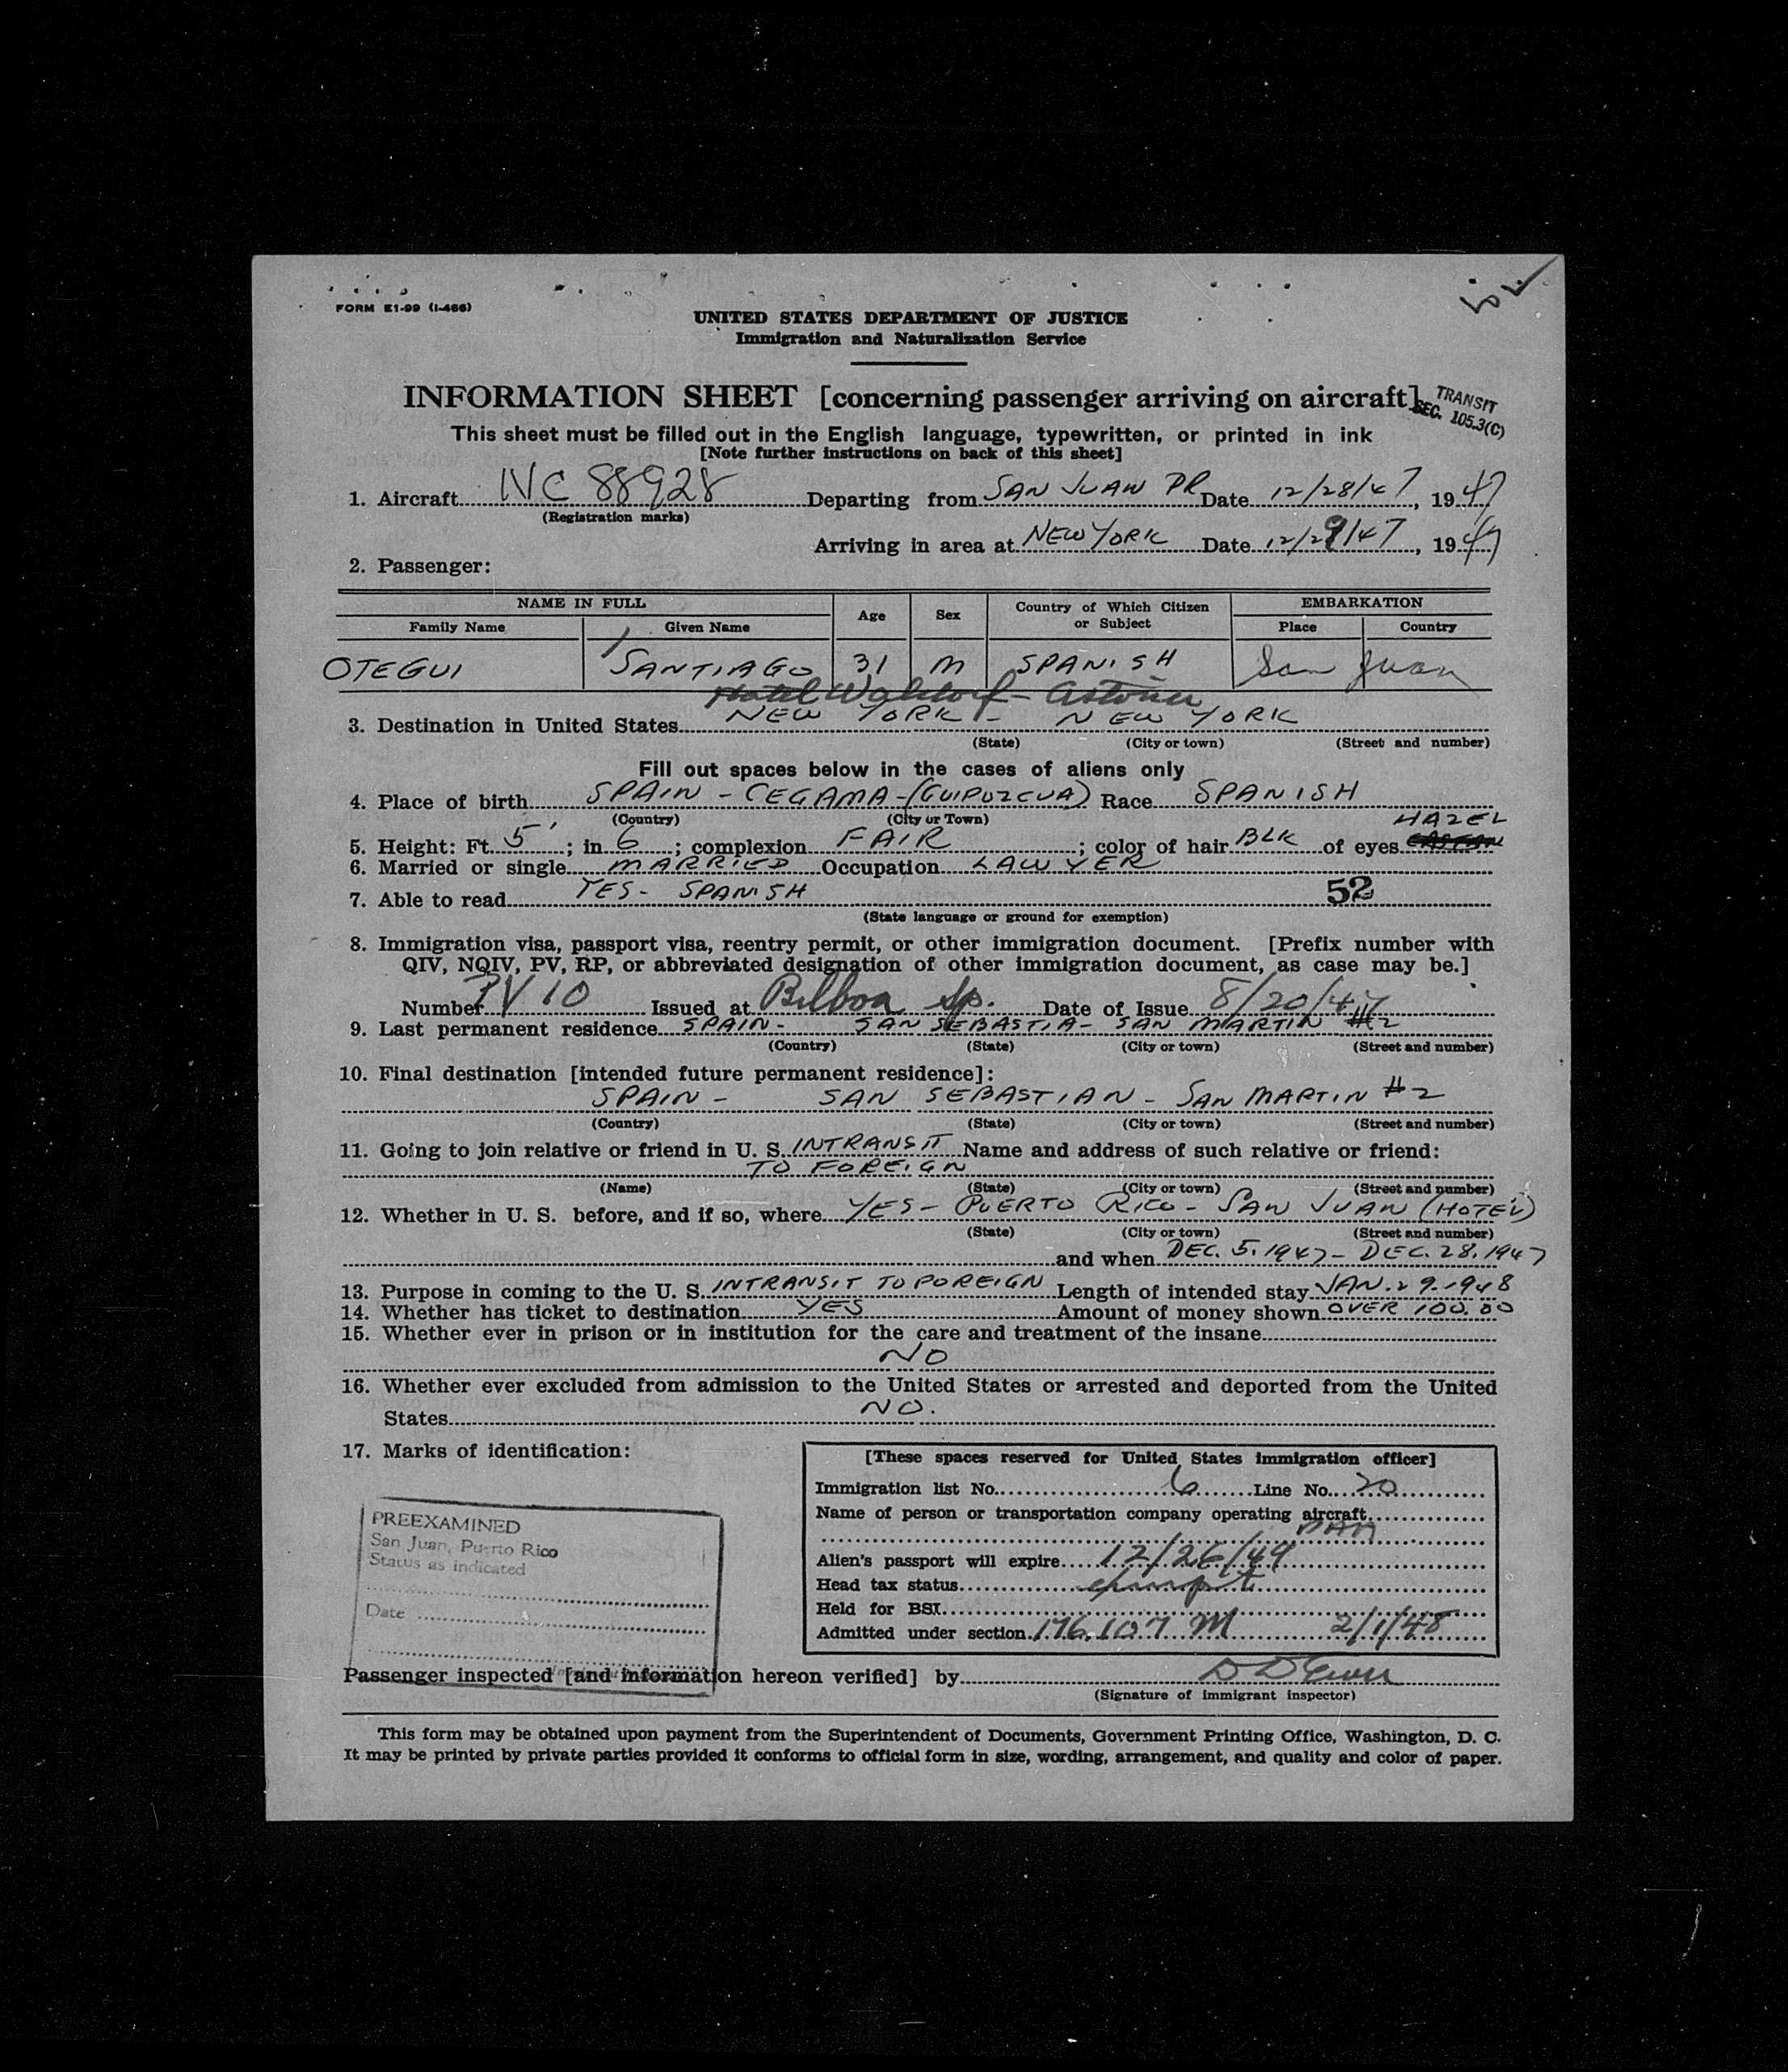 FORM E1-99 (I-466)
UNITED STATES DEPARTMENT OF JUSTICE
Immigration and Naturalization Service
INFORMATION SHEET [concerning passenger arriving on aircraft]
TRANSIT
SEC. 105.3(C)
This sheet must be filled out in the English language, typewritten, or printed in ink
[Note further instructions on back of this sheet]
1. Aircraft NC 88928 Departing from SAN JUAN PR Date 12/28/47, 1947
(Registration marks)
Arriving in area at NEW YORK Date 12/29/47, 1947
2. Passenger:
NAME IN FULL Age Sex Country of Which Citizen or Subject EMBARKATION
Family Name Given Name Place Country
OTEGUI SANTIAGO 31 M SPANISH San Juan
Hotel Waldorf - Astoria
3. Destination in United States NEW YORK - NEW YORK
(State) (City or town) (Street and number)
Fill out spaces below in the cases of aliens only
4. Place of birth SPAIN - CEGAMA - (GUIPUZCUA) Race SPANISH
(Country) (City or Town)
HAZEL
5. Height: Ft. 5'; in 6; complexion FAIR; color of hair BLK of eyes
6. Married or single MARRIED Occupation LAWYER
7. Able to read YES - SPANISH 52
(State language or ground for exemption)
8. Immigration visa, passport visa, reentry permit, or other immigration document. [Prefix number with
QIV, NQIV, PV, RP, or abbreviated designation of other immigration document, as case may be.]
Number PV 10 Issued at Bilboa Sp. Date of Issue 8/20/47
9. Last permanent residence SPAIN - SAN SEBASTIA - SAN MARTIN #2
(Country) (State) (City or town) (Street and number)
10. Final destination [intended future permanent residence]:
SPAIN - SAN SEBASTIAN - SAN MARTIN #2
(Country) (State) (City or town) (Street and number)
11. Going to join relative or friend in U. S. INTRANSIT Name and address of such relative or friend:
TO FOREIGN
(Name) (State) (City or town) (Street and number)
12. Whether in U. S. before, and if so, where YES - PUERTO RICO - SAN JUAN (HOTEL)
(State) (City or town) (Street and number)
and when DEC. 5. 1947 - DEC. 28. 1947
13. Purpose in coming to the U. S. INTRANSIT TO FOREIGN Length of intended stay JAN. 29. 1948
14. Whether has ticket to destination YES Amount of money shown OVER 100.00
15. Whether ever in prison or in institution for the care and treatment of the insane
NO
16. Whether ever excluded from admission to the United States or arrested and deported from the United
States NO.
17. Marks of identification:
PREEXAMINED
San Juan, Puerto Rico
Status as indicated
Date
[These spaces reserved for United States immigration officer]
Immigration list No. 6 Line No. 20
Name of person or transportation company operating aircraft
PAA
Alien's passport will expire 12/26/49
Head tax status exempt
Held for BSI
Admitted under section 176.107 M 2/1/48
Passenger inspected [and information hereon verified] by
(Signature of immigrant inspector)
This form may be obtained upon payment from the Superintendent of Documents, Government Printing Office, Washington, D. C.
It may be printed by private parties provided it conforms to official form in size, wording, arrangement, and quality and color of paper.